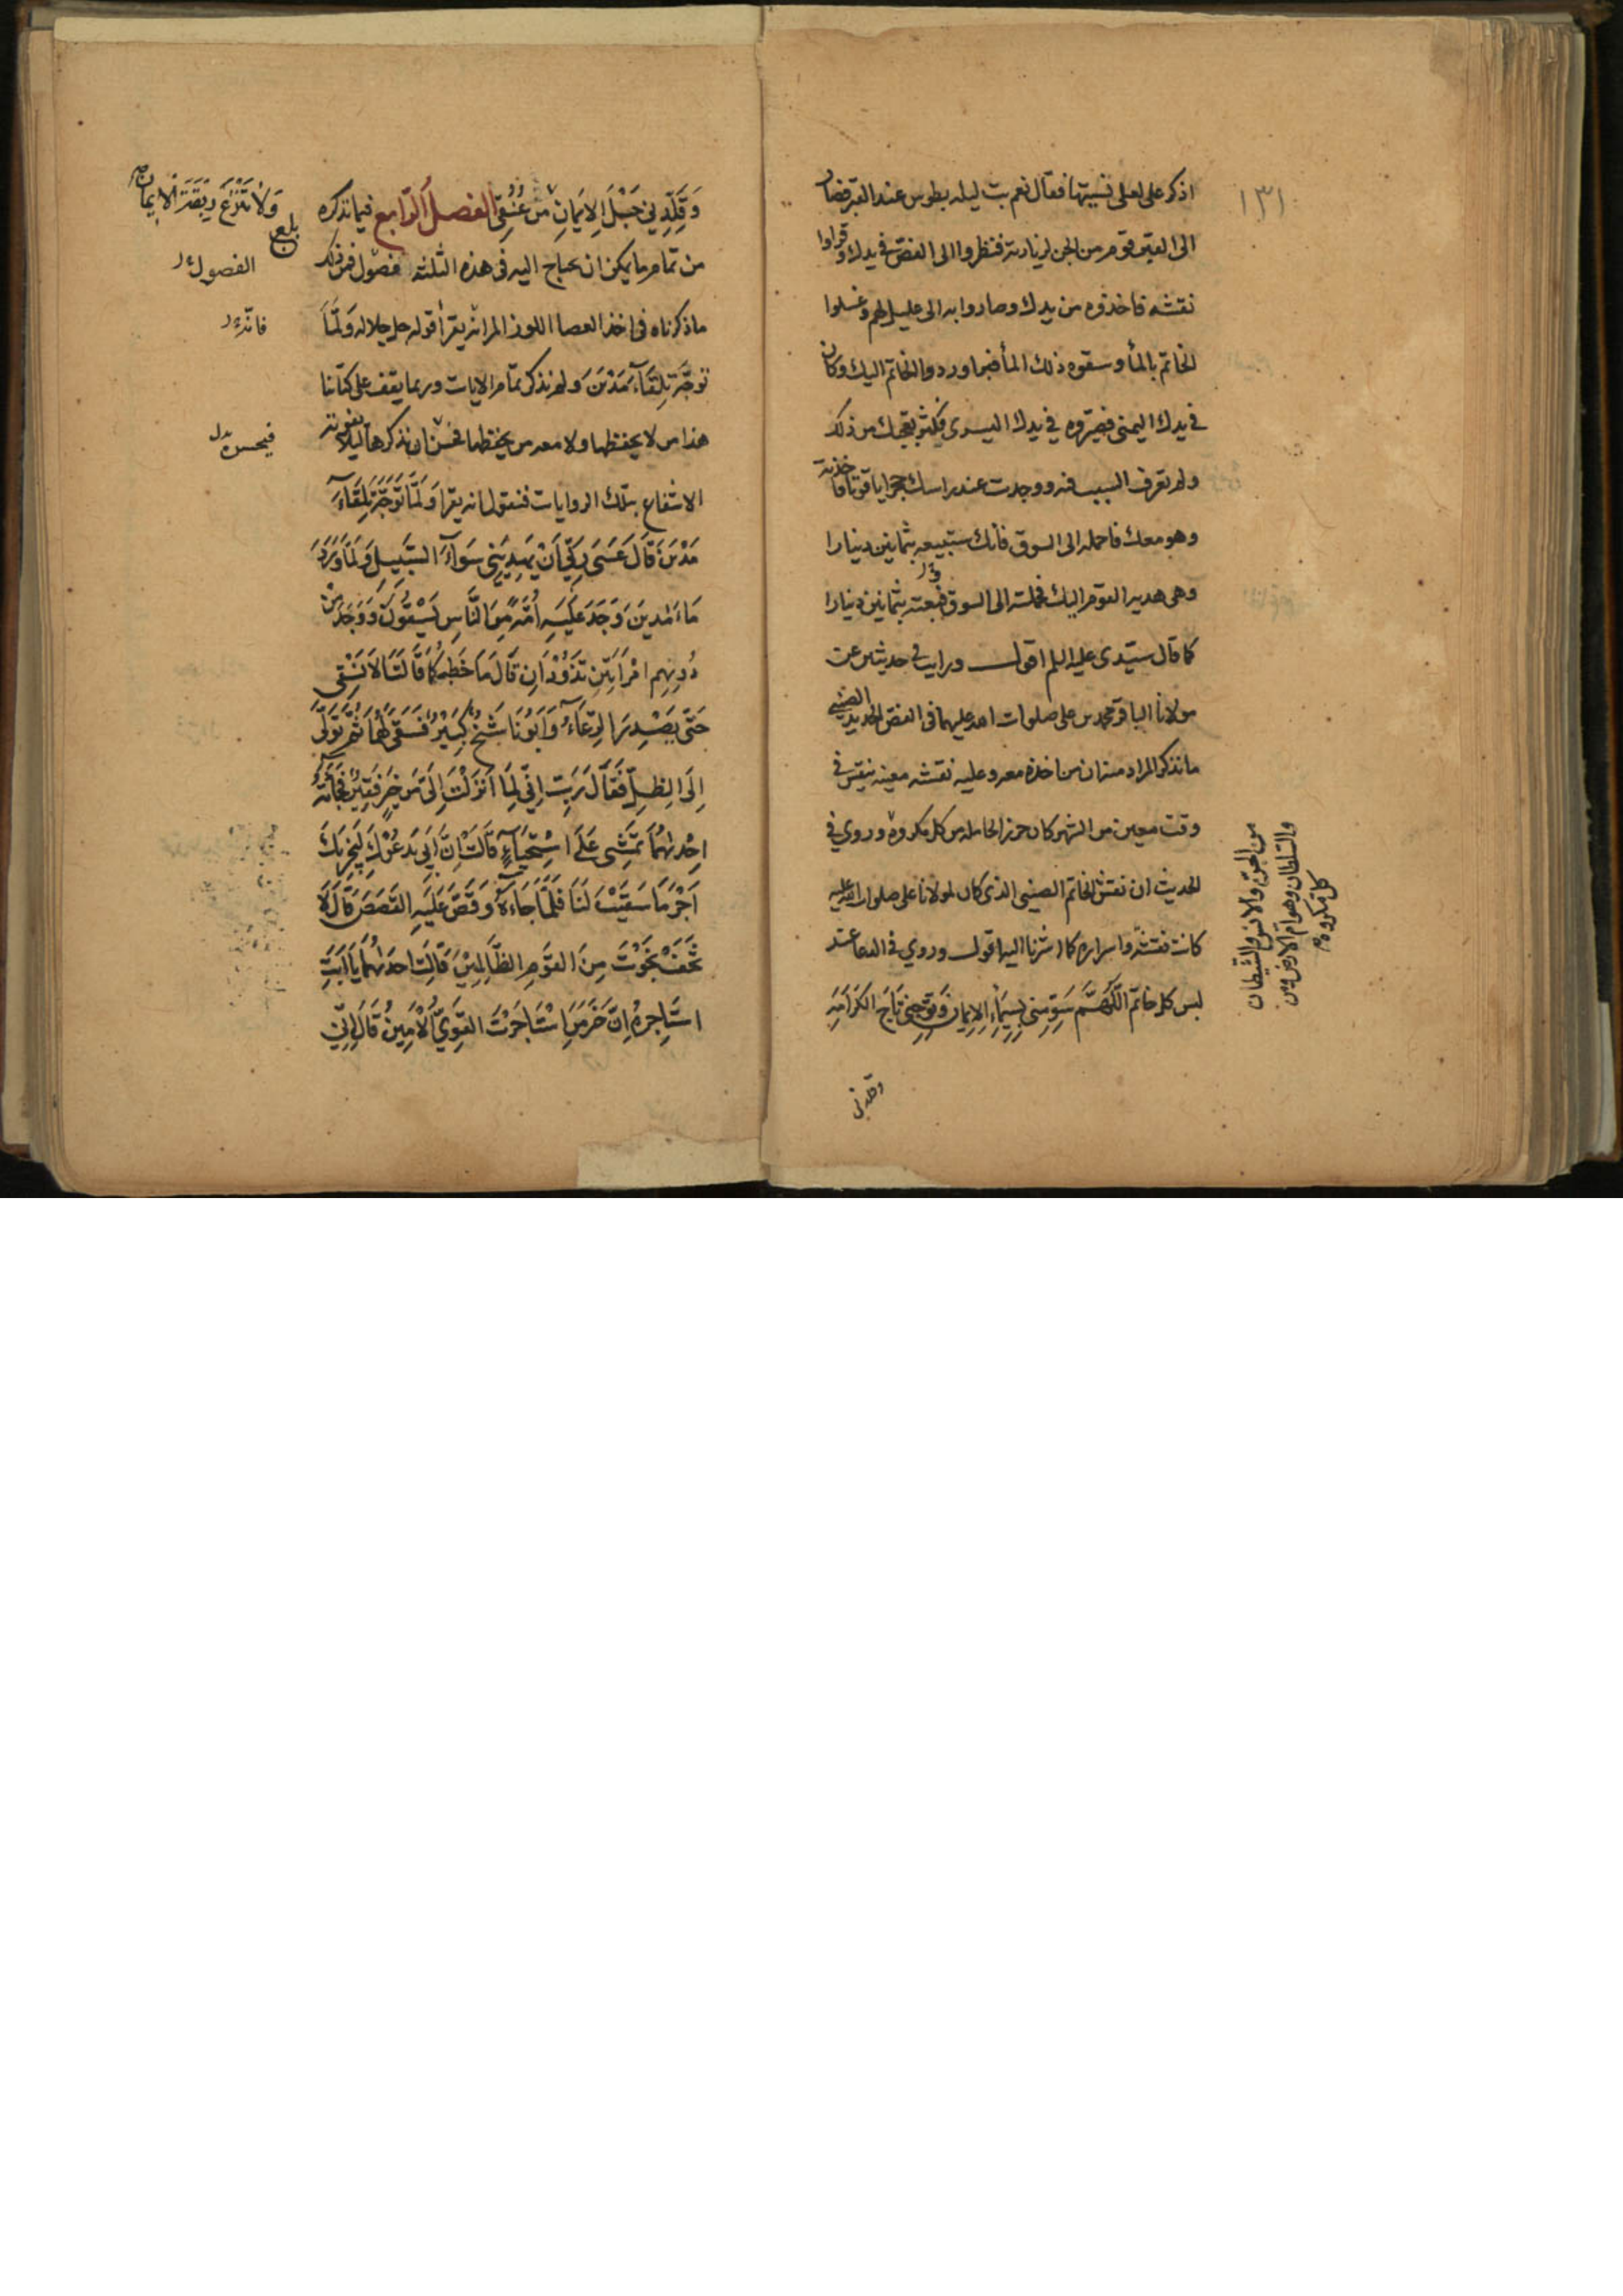 ١٣١
اذكر على لعلى نسيتها فقال نعم بت ليلة بطوس عند القبر فصار
الى القبر قوم من الجن لزيارته فنظروا الى الفص في يدك وقراوا
نقشه فاخذوه من يدك وصاروا به الى عليل لهم وغسلوا
الخاتم بالمأ وسقوه ذلك المأ فبرا وردوا الخاتم اليك وكان
في يدك اليمنى فصيروه في يدك اليسرى فكثر تعجبك من ذلك
ولم تعرف السبب فيه ووجدت عند راسك حجرا ياقوتا فاخذته
وهو معك فاحمله الى السوق فأنك ستبيعه بثمانين دينارا
وهى هدية القوم اليك فحملته الى السوق فبعته بثمانين دينارا
كما قال سيّدى عليه السلم اقول ورايت في حديث عن
مولانا الباقر محمد بن على صلوات الله عليهما فى الفص الحديد الصينى
ما نذكر المراد منه ان من اخذه معه وعليه نقشه معينه ينقش في
وقت معين من الشهر كان حرز الحامله من كل مكروه وروي في
الحديث ان نقش الخاتم الصينى الذى كان لمولانا على صلوات الله عليه
كانت نقشه واسراره كما اشرنا اليه اقول وروي في الدعا عند
لبس كل خاتم اَللّهُمَّ سَوِّمْنى بِسِيمَاءِ الإِيمَانِ وَتَوِّجْنى تَاجَ الكَرَامَةِ
من الجن والانس والشيطان
والسلطان وهوام الارض ومن
كل مكروه
وقلدنى
وَقَلِّدْنِي حَبْلَ الإِيمَانِ مِنْ عُنُقِي الفصل الرّابع فيما نذكره
وَلاَ تَنْزَعْ رِبْقَةَ الاِيمانِ صح
بلغ
من تمام ما يمكن ان يحتاج اليه فى هذه الثلثة فصول فمن ذلك
الفصول
ما ذكرناه فى اخذ العصا اللوز المر انه يقرأ قوله جل جلاله وَلَمَّا
فانّه
تَوَجَّهَ تِلْقَآءَ مَدْيَنَ ولم نذكر تمام الايات وربما يقف على كتابنا
هذا من لا يحفظها ولا معه من يحفظها فحسن ان نذكرها ليلا يفوته
فيحسن
الانتفاع بتلك الروايات فنقول انه يقرا وَلَمَّا تَوَجَّهَ تِلْقَآءَ
مَدْيَنَ قَالَ عَسَى رَبِّي اَنْ يَهْدِيَنِي سَوَآءَ السَّبِيلِ وَلَمَّا وَرَدَ
مَاءَ مَدْيَنَ وَجَدَ عَلَيْهِ اُمَّةً مِنَ النَّاسِ يَسْقُونَ وَوَجَدَ مِنْ
دُونِهِم امْرَاَتَيْنِ تَذُودَانِ قَالَ مَا خَطْبُكُمَا قَالَتَا لاَ نَسْقِى
حَتَّى يُصْدِرَ الرِّعَآءُ وَاَبُونَا شَيْخٌ كَبِيْرٌ فَسَقَى لَهُمَا ثُمَّ تَوَلَّى
اِلَى الظِّلِّ فَقَالَ رَبِّ اِنِّي لِمَا اَنْزَلْتَ اِلَىَّ مِنْ خَيْرٍ فَقِيْرٌ فَجَآءَتْهُ
اِحْدٰيهُمَا تَمْشِى عَلَى اسْتِحْيَآءٍ قَالَتْ اِنَّ اَبِي يَدْعُوكَ لِيَجْزِيَكَ
اَجْرَ مَا سَقَيْتَ لَنَا فَلَمَّا جَاءَهُ وَقَصَّ عَلَيْهِ القَصَصَ قَالَ لاَ
تَخَفْ نَجَوْتَ مِنَ القَوْمِ الظَّالِمِيْنَ قَالَتْ احدٰيهُمَا يَا اَبَتِ
اسْتَاجِرْهُ اِنَّ خَيْرَ مَنِ اسْتَاجَرْتَ القَوِيُّ الْاَمِينُ قَالَ اِنِّي